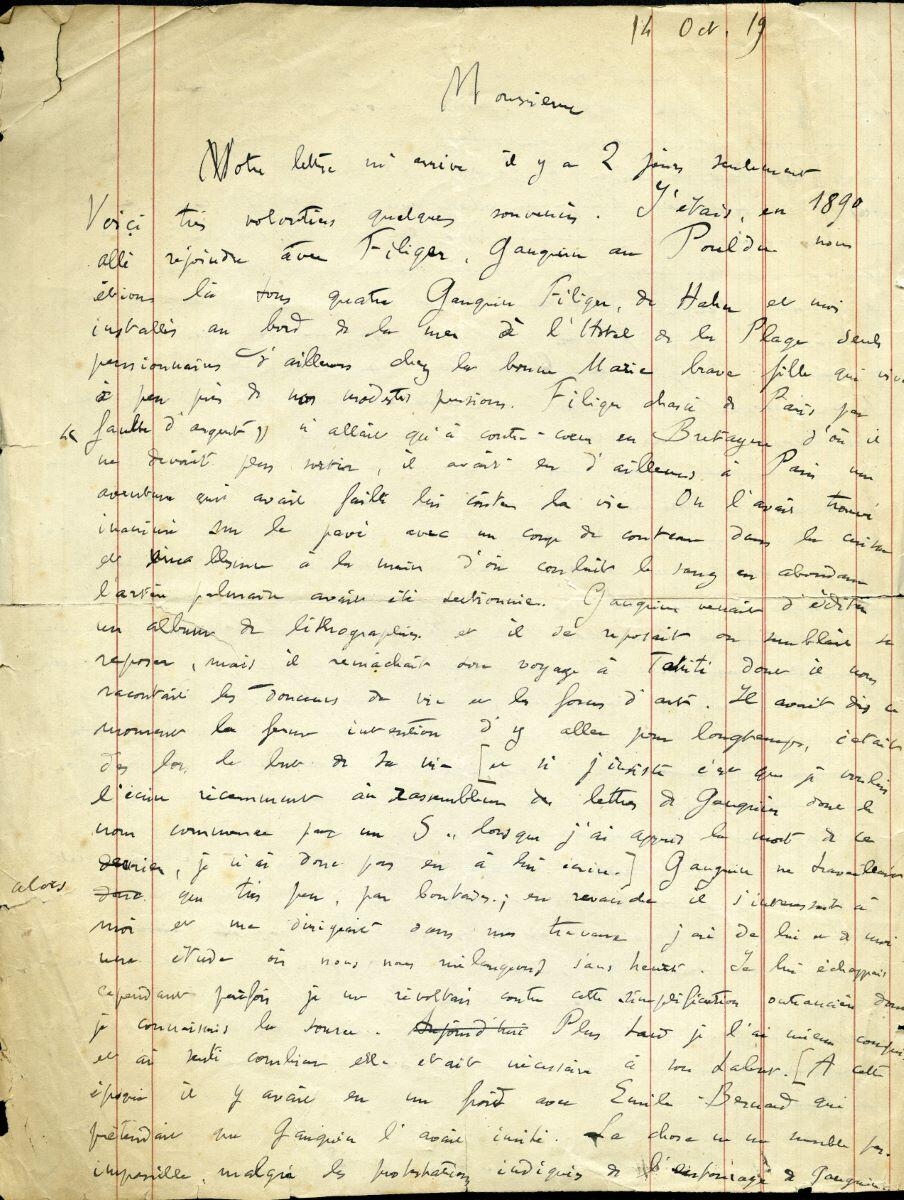 14 Oct. 19
Monsieur
Votre lettre m'arrive il y a 2 jours seulement
Voiçi très volontiers quelques souvenirs. J'étais, en 1890
allé rejoindre avec Filiger, Gauguin au Pouldu nous
étions là tous quatre Gauguin Filiger, de Hahn et moi
installés au bord de la mer à l'Hotel de la Plage seuls
pensionnaires d'ailleurs chez la bonne Marie brave fille qui
à peu près de nos modestes pensions. Filiger chassé de Paris par
faute d'argent n'allait qu'à contre-coeur en Bretagne d'où il
ne devait plus sortir, il avait eu d'ailleurs à Paris une
aventure qui avait failli lui coûter la vie On l'avait trouvé
inanimé sur le pavé avec un coup de couteau dans la cuisse
et une blessure à la main d'où coulait le sang en abondance
l'artère palmaire avait été sectionnée. Gauguin venait d'éditer
un album de lithographies et il se reposait ou semblait se
reposer, mais il remâchait son voyage à Tahiti dont il nous
racontait les douceurs de vie et les formes d'art. Il avait dès ce
moment la ferme intention d'y aller pour longtemps, c'était
dès lors le but de sa vie [et si j'insiste c'est que je voulais
l'écrire récemment au rassembleur des lettres de Gauguin dont le
nom commence par un S.. lorsque j'ai appris la mort de ce
dernier, je n'ai donc pas eu à lui écrire.] Gauguin ne travaillait
alors
donc que très peu, par boutades; en revanche il s'intéressait à
moi et me dirigeait dans mes travaux j'ai de lui et de moi
une étude où nous nous mélangeons sans heurt. Je lui échappais
cependant parfois je me révoltais contre cette simplification outrancière dont
je connaissais la source. Aujourd'hui Plus tard je l'ai mieux compris
et ai senti combien elle était nécessaire à son talent. [A cette
époque il y avait eu un froid avec Emile-Bernard qui
prétendait que Gauguin l'avait imité. La chose ne me semble pas
impossible, malgré les protestations indignées de l'entourage de Gauguin